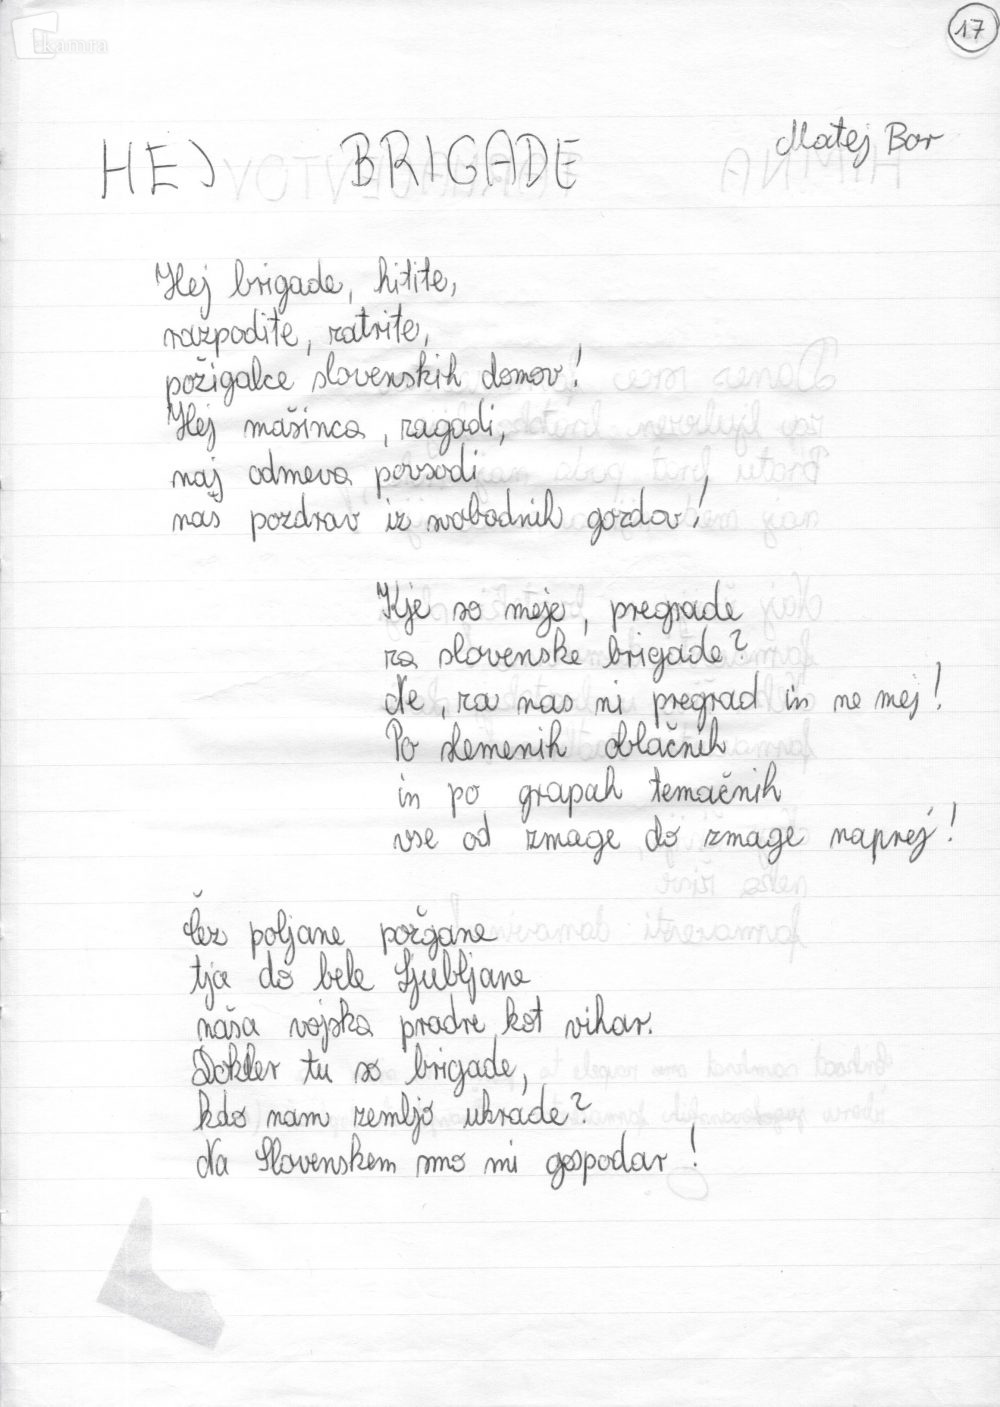 kamra
17
HEJ BRIGADE
Matej Bor
Hej brigade, hitite,
razpodite, zatrite,
požigalce slovenskih domov!
Hej mašinca, zagodi,
naj odmeva povsodi
naš pozdrav iz svobodnih gozdov!
Kje so meje, pregrade
za slovenske brigade?
Ne, za nas ni pregrad in ne mej!
Po slemenih oblačnih
in po grapah temačnih
vse od zmage do zmage naprej!
Čez poljane požgane
tja do bele Ljubljane
naša vojska pradre kot vihar.
Dokler tu so brigade,
kdo nam zemljo ukrade?
Na Slovenskem smo mi gospodar!